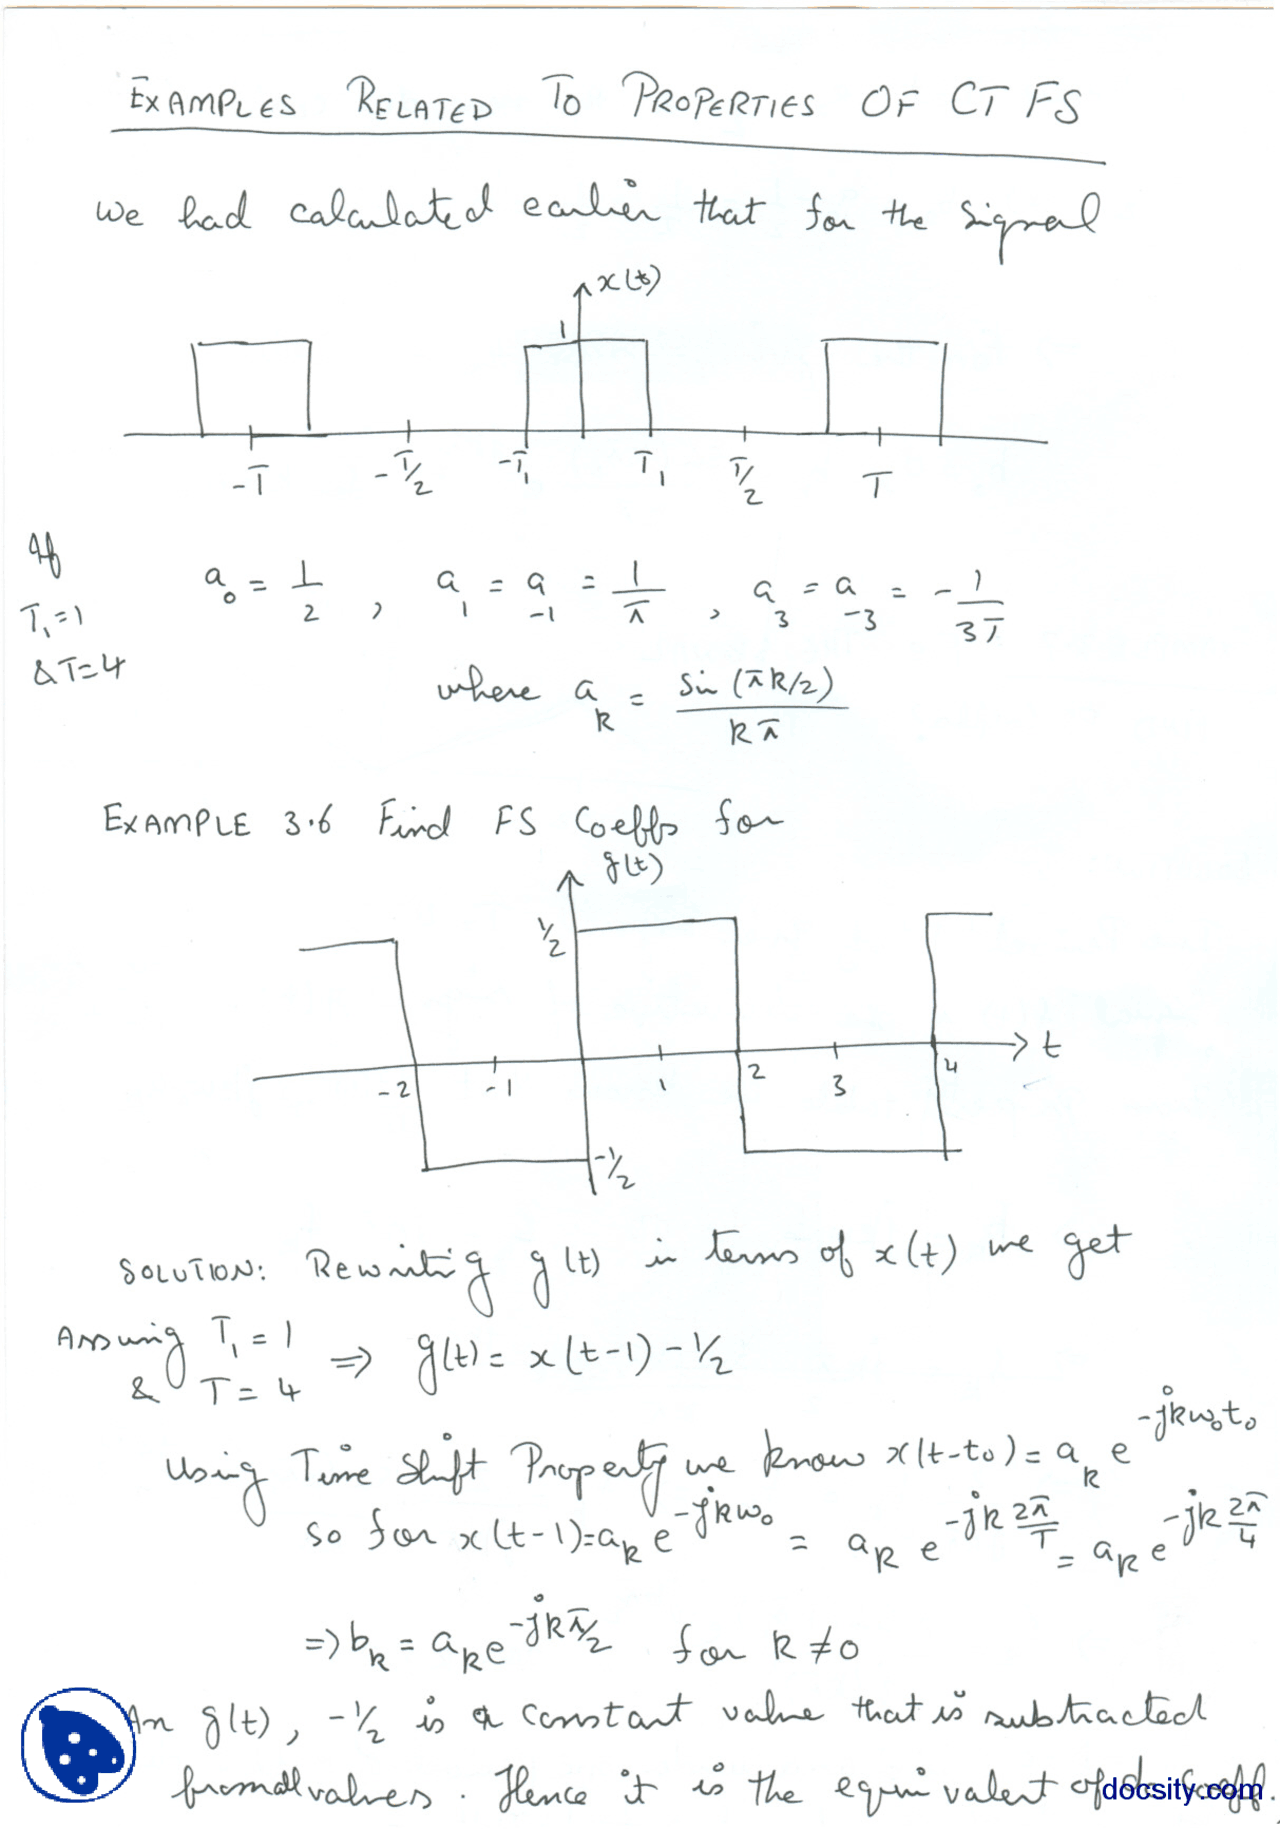 EXAMPLES RELATED TO PROPERTIES OF CT FS
We had calculated earlier that for the signal
x(t)
1
-T -T/2 -T₁ T₁ T/2 T
If
T₁=1
& T=4
a₀ = 1/2 , a₁ = a₋₁ = 1/π , a₃ = a₋₃ = -1/3π
where a_k = sin (πk/2) / kπ
EXAMPLE 3.6 Find FS Coeffs for
g(t)
1/2
-2 -1 1 2 3 4 t
-1/2
SOLUTION: Rewriting g(t) in terms of x(t) we get
Assuming T₁ = 1
& T = 4 ⇒ g(t) = x(t-1) - 1/2
Using Time Shift Property we know x(t-t₀) = a_k e^{-jkω₀t₀}
so for x(t-1) = a_k e^{-jkω₀} = a_k e^{-jk 2π/T} = a_k e^{-jk 2π/4}
⇒ b_k = a_k e^{-jkπ/2} for k ≠ 0
In g(t), -1/2 is a constant value that is subtracted
from all values. Hence it is the equivalent of dc coeff.
docsity.com